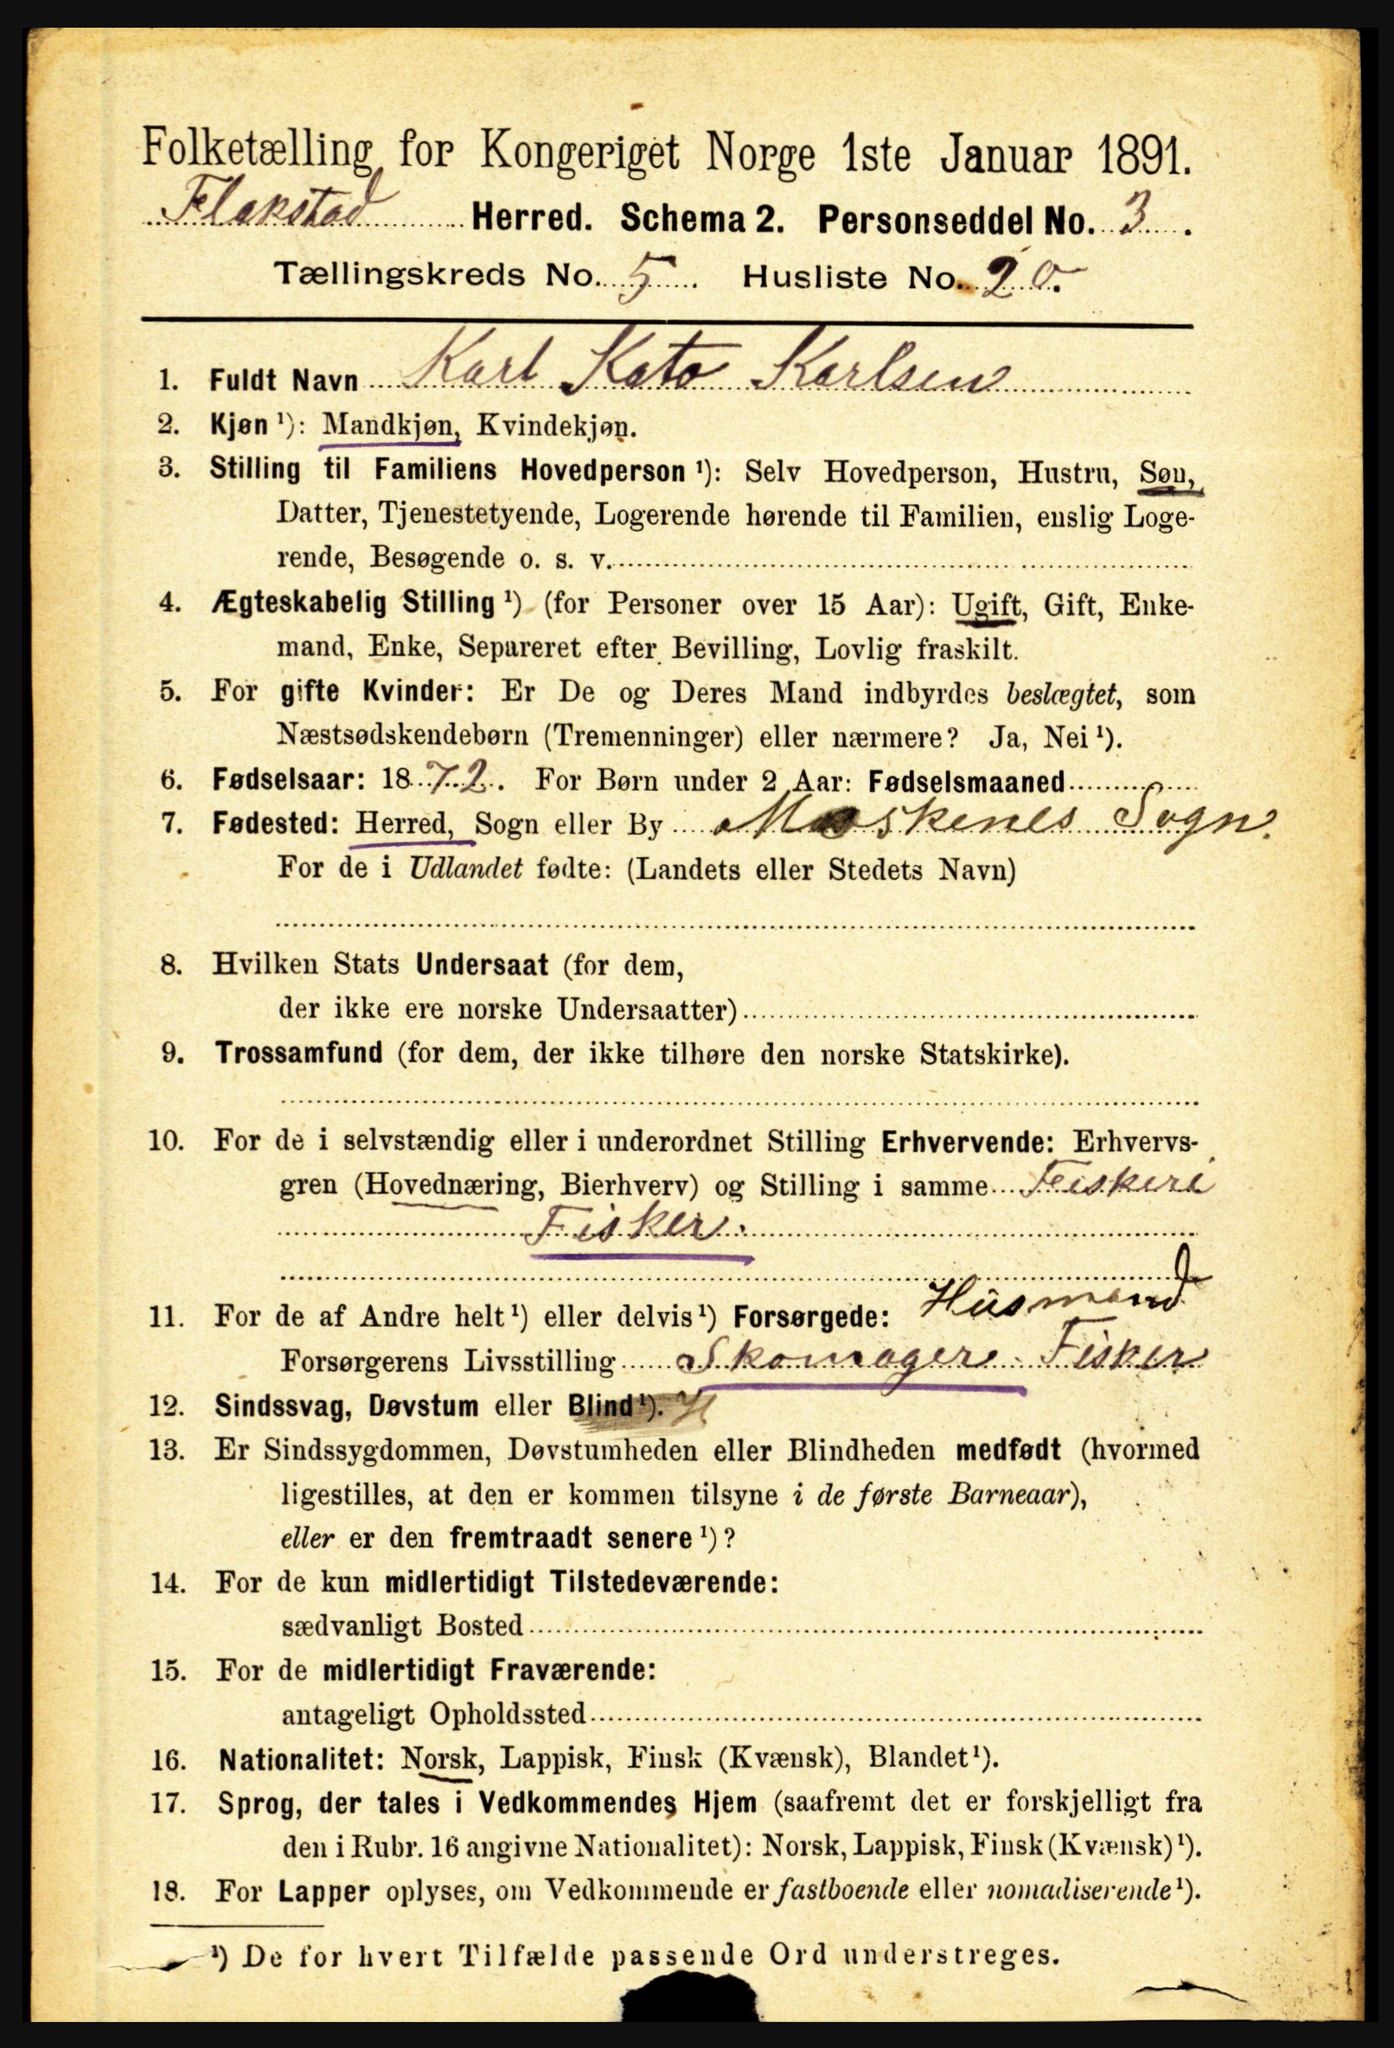 Folketælling for Kongeriget Norge 1ste Januar 1891.
Flakstad Herred. Schema 2. Personseddel No. 3.
Tællingskreds No. 5. Husliste No. 20.
1. Fuldt Navn Karl Kato Karlsen
2. Kjøn ¹): Mandkjøn, Kvindekjøn.
3. Stilling til Familiens Hovedperson ¹): Selv Hovedperson, Hustru, Søn,
Datter, Tjenestetyende, Logerende hørende til Familien, enslig Loge-
rende, Besøgende o. s. v.
4. Ægteskabelig Stilling ¹) (for Personer over 15 Aar): Ugift, Gift, Enke-
mand, Enke, Separeret efter Bevilling, Lovlig fraskilt.
5. For gifte Kvinder: Er De og Deres Mand indbyrdes beslægtet, som
Næstsødskendebørn (Tremenninger) eller nærmere? Ja, Nei ¹).
6. Fødselsaar: 1872. For Børn under 2 Aar: Fødselsmaaned
7. Fødested: Herred, Sogn eller By Moskenes Sogn.
For de i Udlandet fødte: (Landets eller Stedets Navn)
8. Hvilken Stats Undersaat (for dem,
der ikke ere norske Undersaatter)
9. Trossamfund (for dem, der ikke tilhøre den norske Statskirke).
10. For de i selvstændig eller i underordnet Stilling Erhvervende: Erhvervs-
gren (Hovednæring, Bierhverv) og Stilling i samme Fiskeri
Fisker.
11. For de af Andre helt ¹) eller delvis ¹) Forsørgede: Husmand
Forsørgerens Livsstilling Skomager. Fisker
12. Sindssvag, Døvstum eller Blind ¹).
13. Er Sindssygdommen, Døvstumheden eller Blindheden medfødt (hvormed
ligestilles, at den er kommen tilsyne i de første Barneaar),
eller er den fremtraadt senere ¹)?
14. For de kun midlertidigt Tilstedeværende:
sædvanligt Bosted
15. For de midlertidigt Fraværende:
antageligt Opholdssted
16. Nationalitet: Norsk, Lappisk, Finsk (Kvænsk), Blandet ¹).
17. Sprog, der tales i Vedkommendes Hjem (saafremt det er forskjelligt fra
den i Rubr. 16 angivne Nationalitet): Norsk, Lappisk, Finsk (Kvænsk) ¹).
18. For Lapper oplyses, om Vedkommende er fastboende eller nomadiserende ¹).
¹) De for hvert Tilfælde passende Ord understreges.